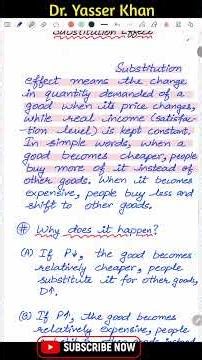 Dr. Yasser Khan
Substitution Effect
Substitution
effect means the change
in quantity demanded of a
good when its price changes,
while real income (satisfac-
-tion level) is kept constant.
In simple words, when a
good becomes cheaper, people
buy more of it instead of
other goods. When it becomes
expensive, people buy less and
shift to other goods.
# Why does it happen?
(A) If P↓, the good becomes
relatively cheaper, people
substitute it for other goods,
D↑.
(B) If P↑, the good becomes
relatively expensive, people
SUBSCRIBE NOW